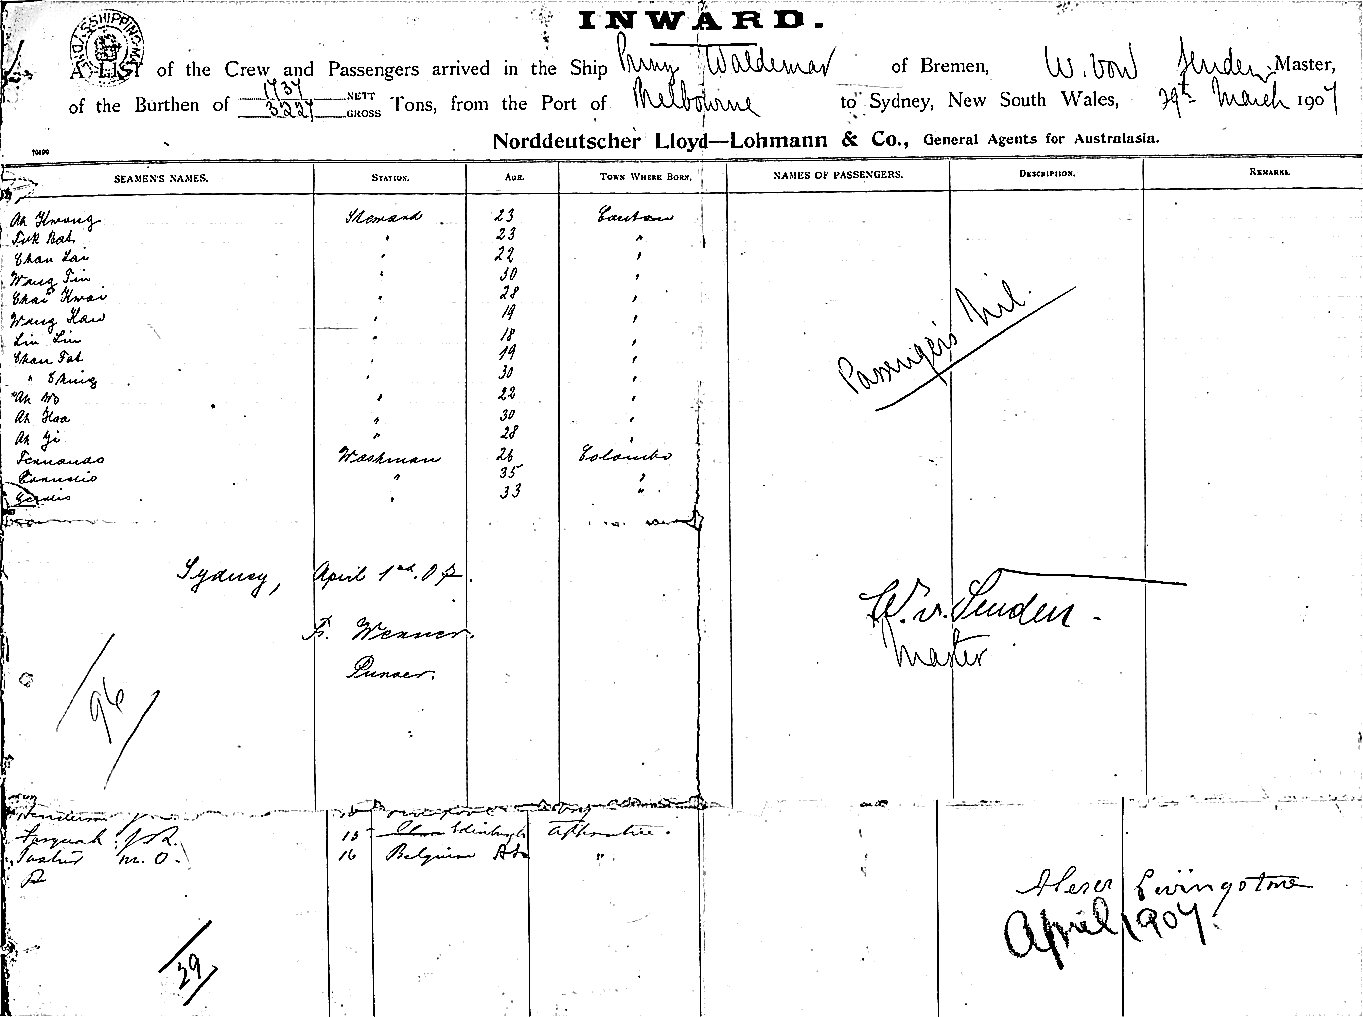 INWARD.
A LIST of the Crew and Passengers arrived in the Ship Prinz Waldemar of Bremen, W. von Senden Master,
of the Burthen of 1737 NETT 3227 GROSS Tons, from the Port of Melbourne to Sydney, New South Wales, 29th March 1907
Norddeutscher Lloyd—Lohmann & Co., General Agents for Australasia.
SEAMEN'S NAMES. STATION. AGE. TOWN WHERE BORN. NAMES OF PASSENGERS. DESCRIPTION. REMARKS.
Ah Kwong Steward 23 Canton
23 "
Chan Lai " 22 "
Wang Tin " 30 "
Chai Kwai " 28 "
Wang Kaw " 19 "
Lin Lin " 18 "
Chan Fat " 19 "
" Ching " 30 "
Ah Wo " 22 "
Ah Hoa " 30 "
Ah Yi " 28 "
Fernando Washman 26 Colombo
" 35 "
" 33 "
Passengers Nil.
Sydney, April 1st. 07.
W. v. Senden.
Master
F. Wenner.
Purser.
96
Henderson
15 Edinburgh Apprentice.
M. O. 16 Belgium "
Livingstone
April 1907.
39